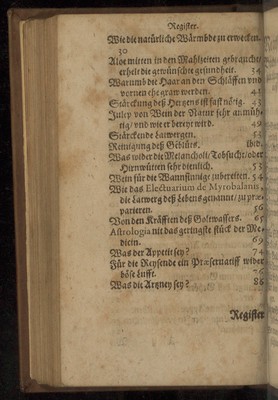 Register.
Wie die natürliche Wärmbde zu erwecken.
30
Aloe mitten in den Mahlzeiten gebrauchet
erhelt die gewünschte gesundheit. 34
Warumb die Haar an den Schläffen vnd
vornen ehe graw werden. 43
Stärckung deß Hertzens ist fast nötig. 43
Julep von Wein der Natur sehr anmüh-
tig/ vnd wie er bereyt wird. 49
Stärckende Latwergen. 55
Reinigung deß Geblüts. Ibid.
Was wider die Melancholi/ Tobsucht/ oder
Hirnwüten sehr dienlich. 53
Wein für die Wannsinnige zubereiten. 54
Wie das Electuarium de Myrobalanis,
die Latwerg deß Lebens genannt/ zu præ-
parieren. 56
Von den Kräfften deß Goltwassers. 65
Astrologia nit das geringste stück der Me-
dicin. 69
Was der Appetit sey? 74
Für die Reysende ein Præservatiff wider
böse Lufft. 76
Was die Artzney sey? 88
Register